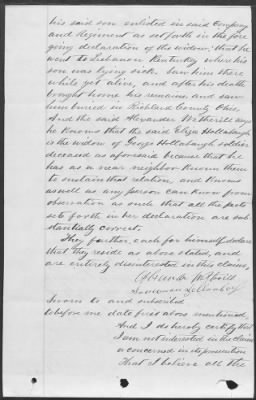 his said son enlisted in said Company
and Regiment as set forth in the fore
going declaration of the widow, that he
went to Lebanon Kentucky where his
son was lying sick. Saw him there
while yet alive, and after his death
bought home his remains and saw
him buried in Richland County Ohio.
And the said Alexander McFherrill says
he knows that the said Eliza Hollabaugh
is the widow of George Hollabaugh soldier
deceased as aforesaid because that he
has as a near neighbor known them
to sustain that relation, and knows
as well as any person can know from
observation as such that all the facts
set forth in her declaration are sub
stantially correct.
They further, each for himself, declare
that they reside as above stated, and
are entirely disinterested in this claim,
Sworn to and subscribed
to before me date first above mentioned,
And I do hereby certify that
I am not interested in the claim
or concerned in its prosecution
That I believe all the